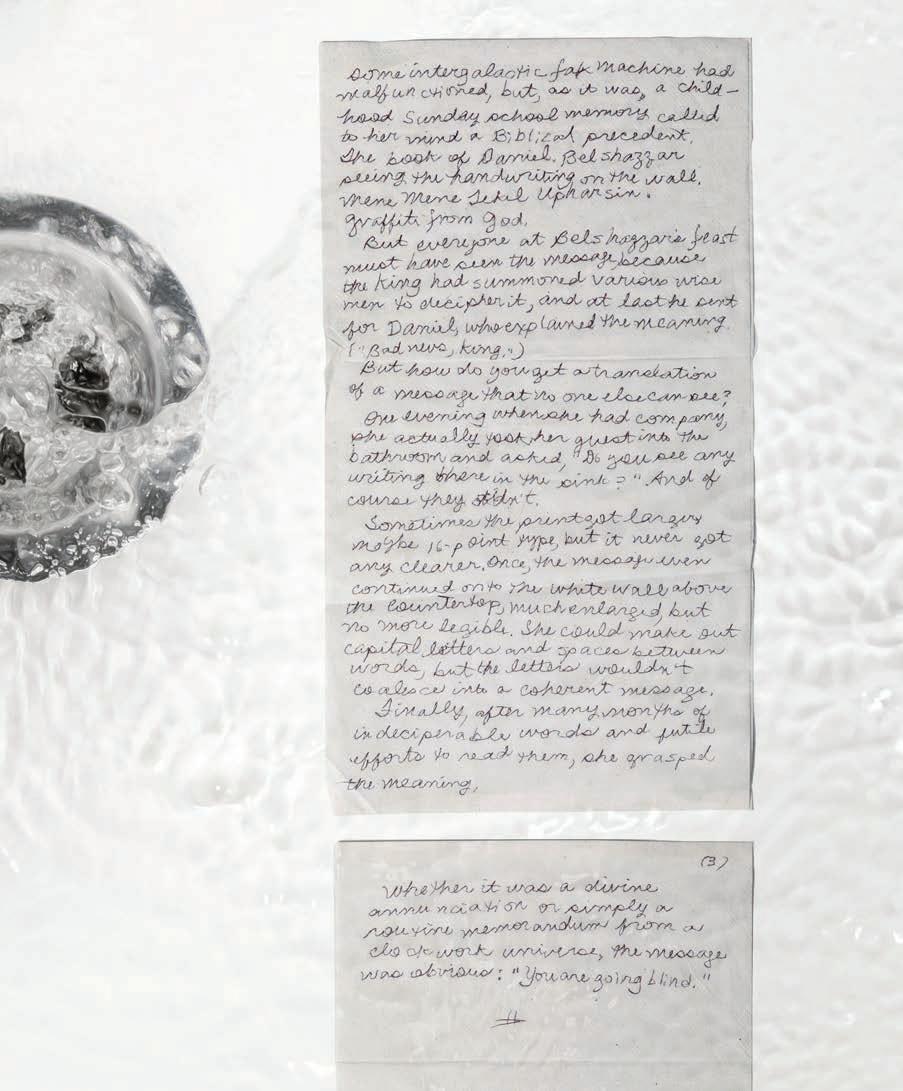 some intergalactic fax machine had
malfunctioned, but, as it was, a child-
hood Sunday school memory called
to her mind a Biblical precedent.
The book of Daniel. Belshazzar
seeing the handwriting on the wall.
Mene Mene Tekil Upharsin.
Graffiti from God.
But everyone at Belshazzar's feast
must have seen the message, because
the King had summoned various wise
men to decipher it, and at last he sent
for Daniel, who explained the meaning.
("Bad news, King.")
But how do you get a translation
of a message that no one else can see?
One evening when she had company,
she actually took her guest into the
bathroom and asked, "Do you see any
writing there in the sink?" And of
course they didn't.
Sometimes the print got larger,
maybe 16-point type, but it never got
any clearer. Once, the message even
continued onto the white wall above
the countertop, much enlarged, but
no more legible. She could make out
capital letters and spaces between
words, but the letters wouldn't
coalesce into a coherent message.
Finally, after many months of
indeciperable words and futile
efforts to read them, she grasped
the meaning.
(3)
Whether it was a divine
annunciation or simply a
routine memorandum from a
clockwork universe, the message
was obvious: "You are going blind."
#